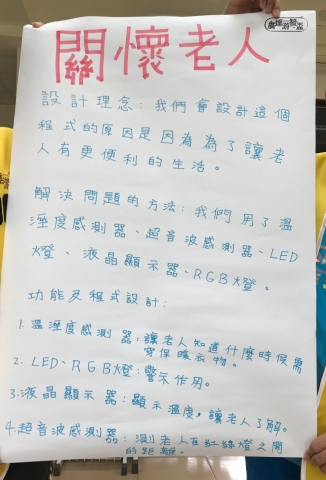 廣達游智盃
關懷老人
設計理念:我們會設計這個
程式的原因是因為為了讓老
人有更便利的生活。
解決問題的方法:我們用了溫
溼度感測器、超音波感測器、LED
燈、液晶顯示器、RGB燈。
功能及程式設計:
1.溫溼度感測器:讓老人知道什麼時候需
穿保暖衣物。
2.LED、RGB燈:警示作用。
3.液晶顯示器:顯示溫度,讓老人了解。
4.超音波感測器:測老人在紅綠燈之間
的距離。